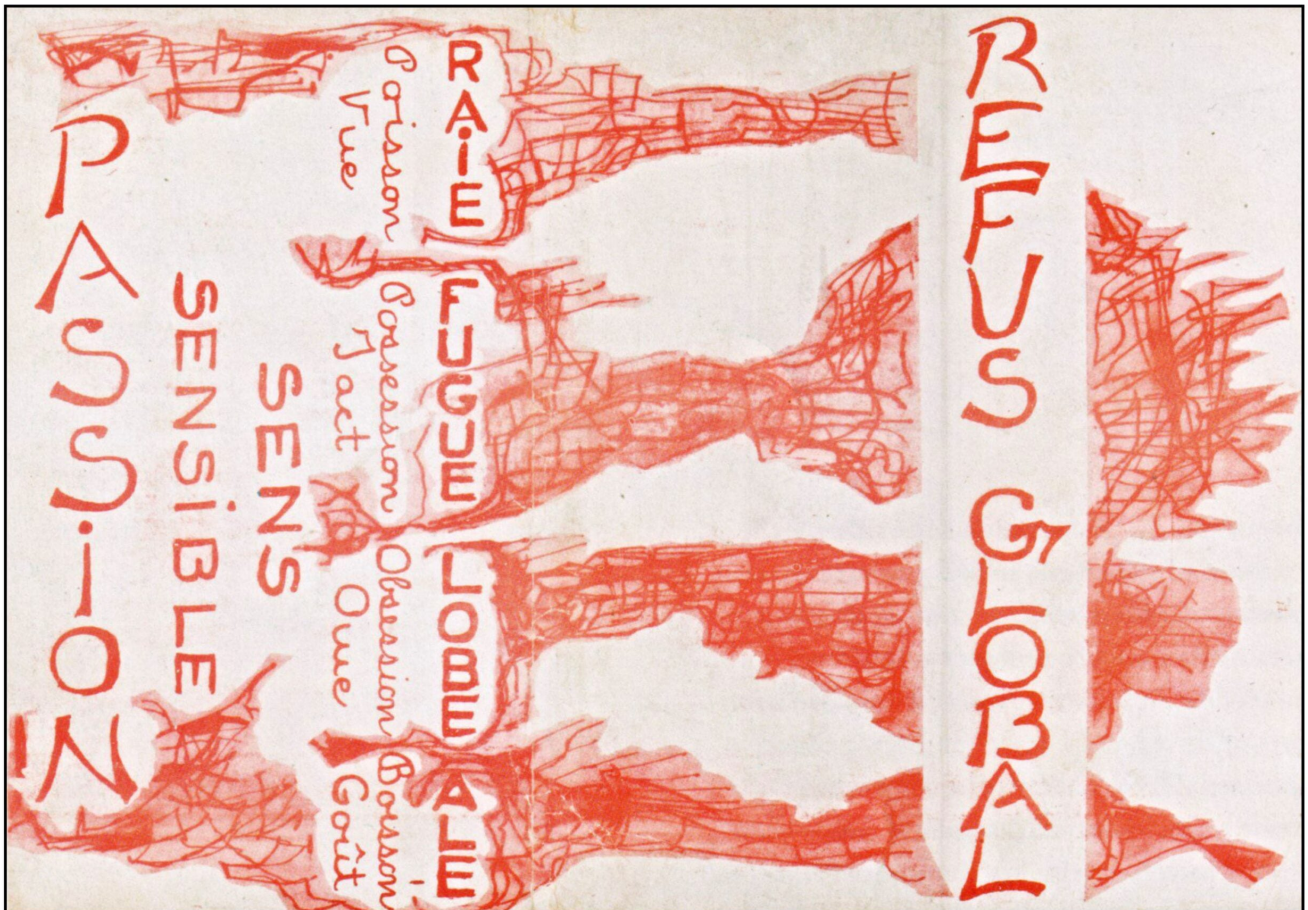 REFUS GLOBAL
RAiE FUGUE LOBE ALE
Poisson Possession Obsession Boisson
Vue Tact Ouie Goût
SENS
SENSiBLE
PASSiON